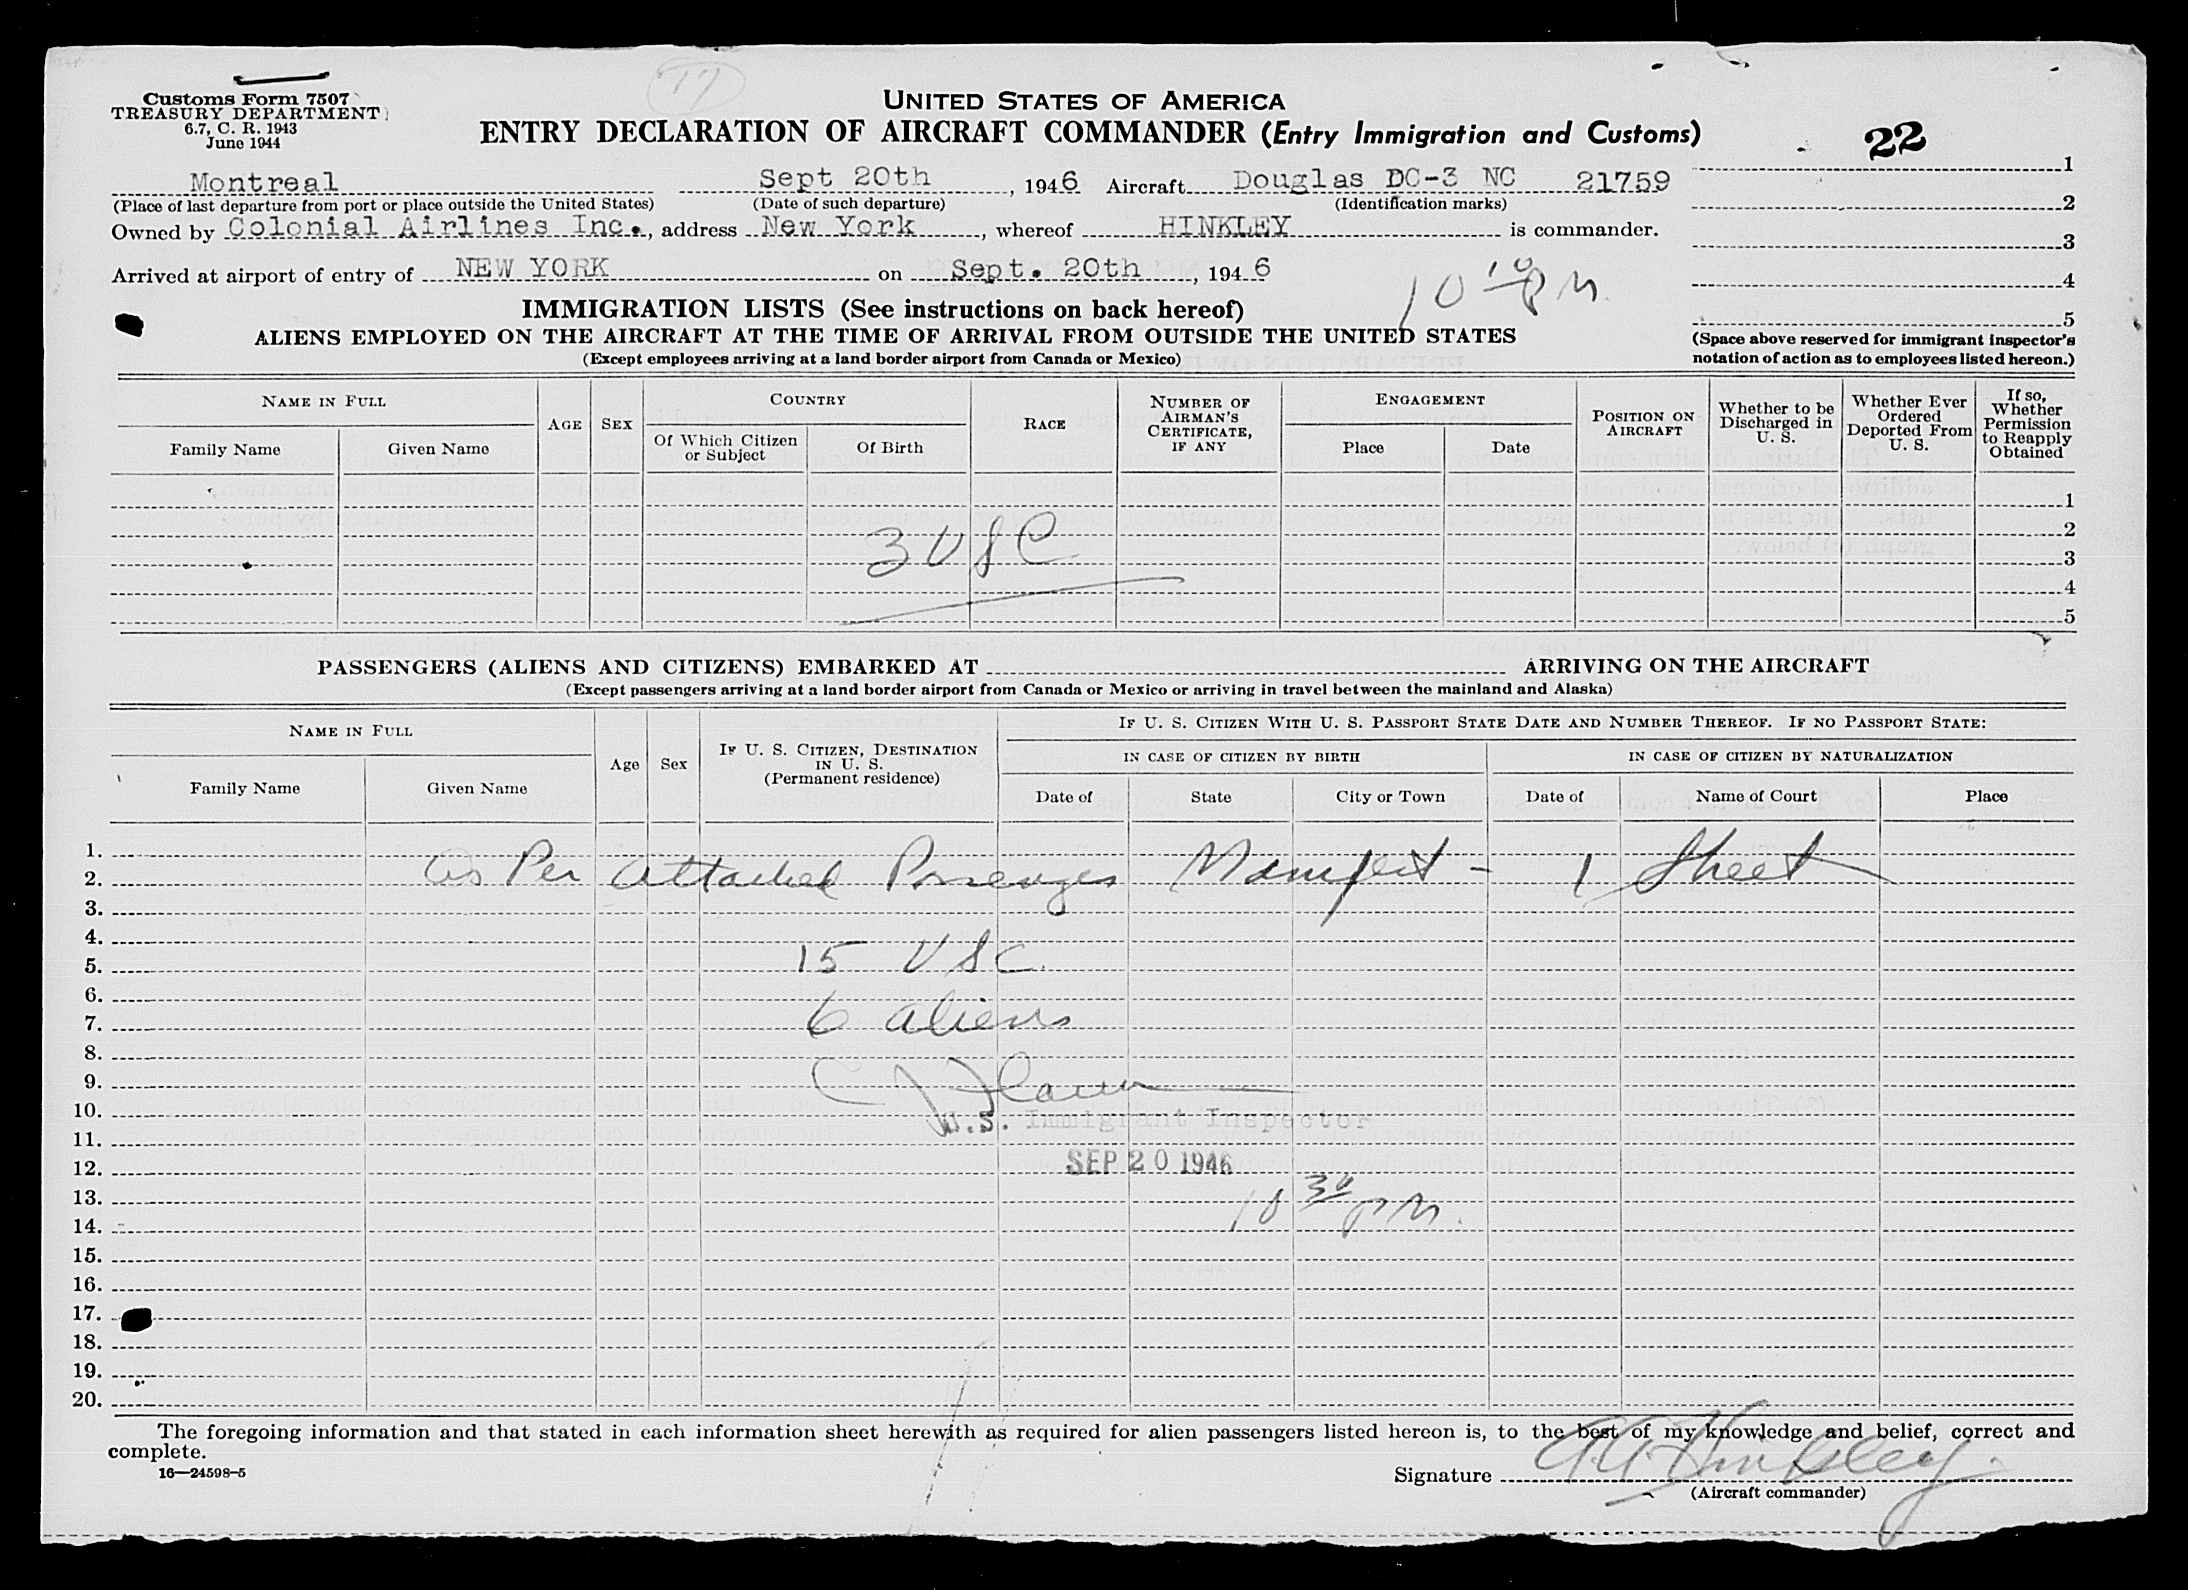 17
Customs Form 7507
TREASURY DEPARTMENT
6.7, C. R. 1943
June 1944
UNITED STATES OF AMERICA
ENTRY DECLARATION OF AIRCRAFT COMMANDER (Entry Immigration and Customs)
22
1
Montreal Sept 20th, 1946 Aircraft Douglas DC-3 NC 21759
(Place of last departure from port or place outside the United States) (Date of such departure) (Identification marks)
2
Owned by Colonial Airlines Inc., address New York, whereof HINKLEY is commander.
3
Arrived at airport of entry of NEW YORK on Sept. 20th, 1946
4
10 10 PM
IMMIGRATION LISTS (See instructions on back hereof)
5
ALIENS EMPLOYED ON THE AIRCRAFT AT THE TIME OF ARRIVAL FROM OUTSIDE THE UNITED STATES
(Except employees arriving at a land border airport from Canada or Mexico)
(Space above reserved for immigrant inspector's
notation of action as to employees listed hereon.)
NAME IN FULL
Family Name Given Name
AGE SEX
COUNTRY
Of Which Citizen or Subject Of Birth
RACE
NUMBER OF AIRMAN'S CERTIFICATE, IF ANY
ENGAGEMENT
Place Date
POSITION ON AIRCRAFT
Whether to be Discharged in U. S.
Whether Ever Ordered Deported From U. S.
If so, Whether Permission to Reapply Obtained
1
2
3 USC
3
4
5
PASSENGERS (ALIENS AND CITIZENS) EMBARKED AT ARRIVING ON THE AIRCRAFT
(Except passengers arriving at a land border airport from Canada or Mexico or arriving in travel between the mainland and Alaska)
NAME IN FULL
Family Name Given Name
Age Sex
IF U. S. CITIZEN, DESTINATION IN U. S. (Permanent residence)
IF U. S. CITIZEN WITH U. S. PASSPORT STATE DATE AND NUMBER THEREOF. IF NO PASSPORT STATE:
IN CASE OF CITIZEN BY BIRTH IN CASE OF CITIZEN BY NATURALIZATION
Date of State City or Town Date of Name of Court Place
1.
2. As Per Attached Passenger Manifest - 1 Sheet
3.
4.
5. 15 USC.
6.
7. 6 aliens
8.
9.
10. U.S. Immigrant Inspector
11.
12. SEP 20 1946
13. 10 30 PM.
14.
15.
16.
17.
18.
19.
20.
The foregoing information and that stated in each information sheet herewith as required for alien passengers listed hereon is, to the best of my knowledge and belief, correct and
complete.
16—24598-5
Signature Hinkley
(Aircraft commander)